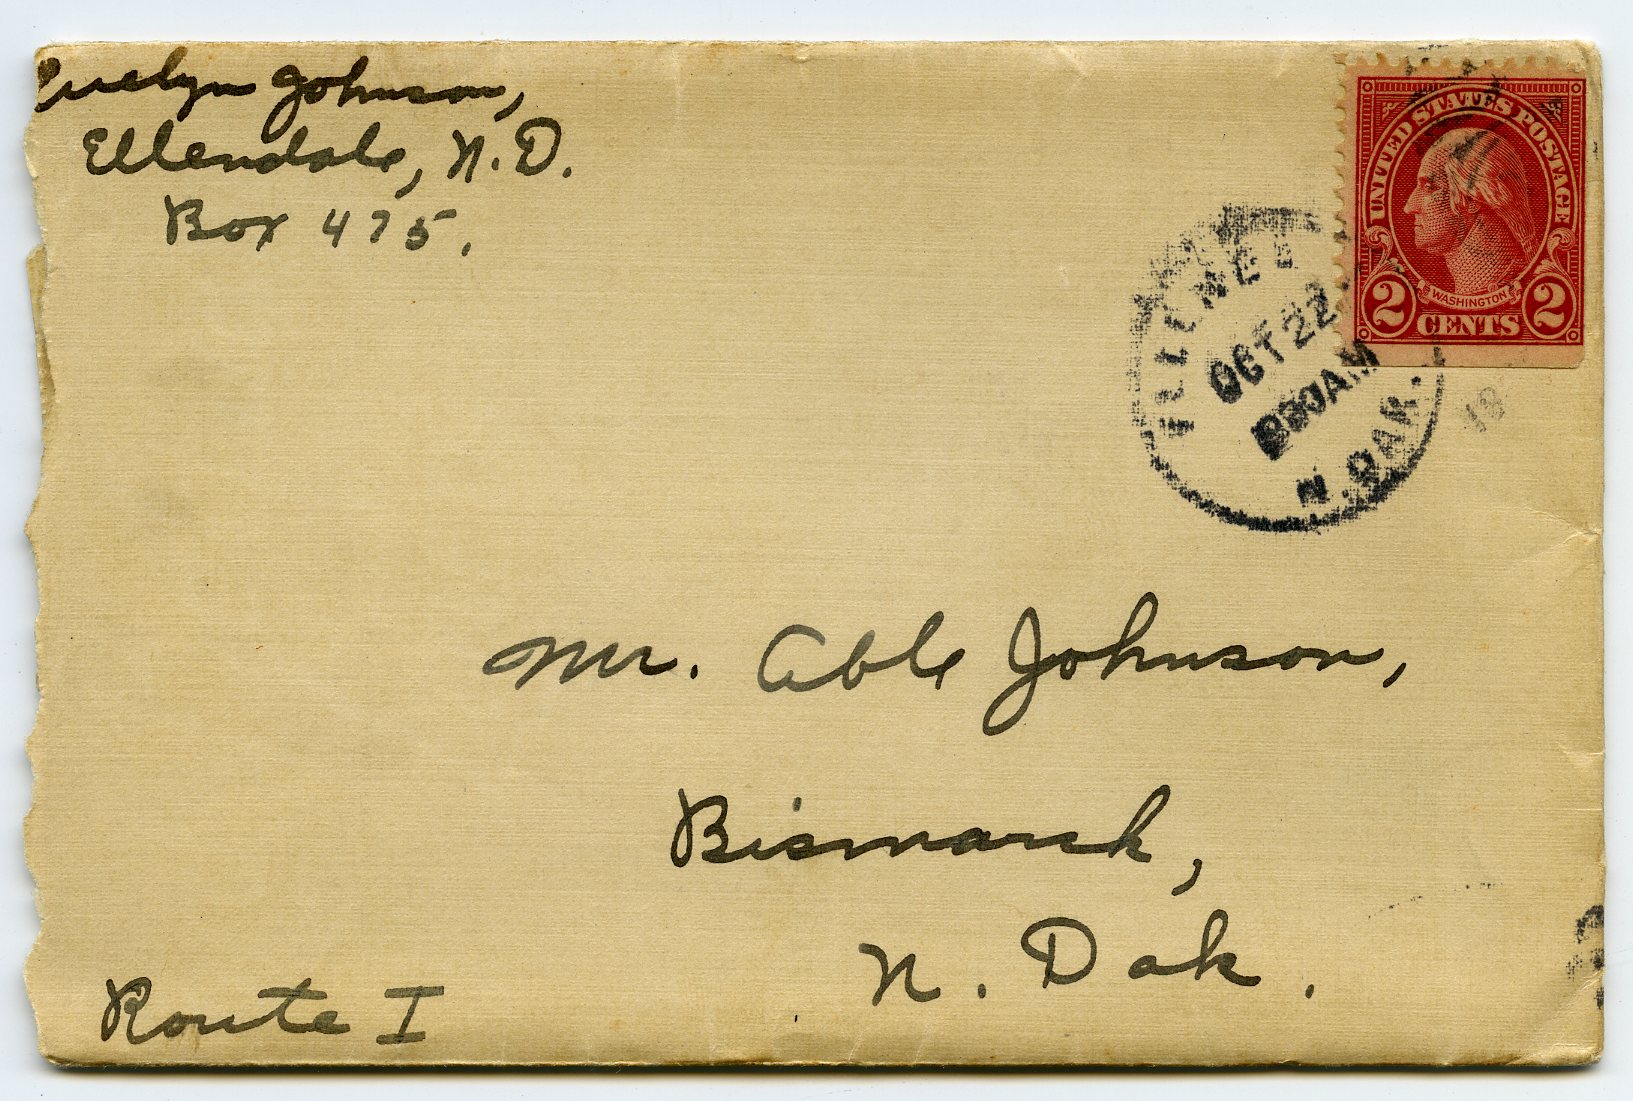 Evelyn Johnson,
Ellendale, N.D.
Box 475.
UNITED STATES POSTAGE
WASHINGTON
2 CENTS 2
OCT 22
AM
N. DAK.
18
Mr. Able Johnson,
Bismarck,
N. Dak.
Route I